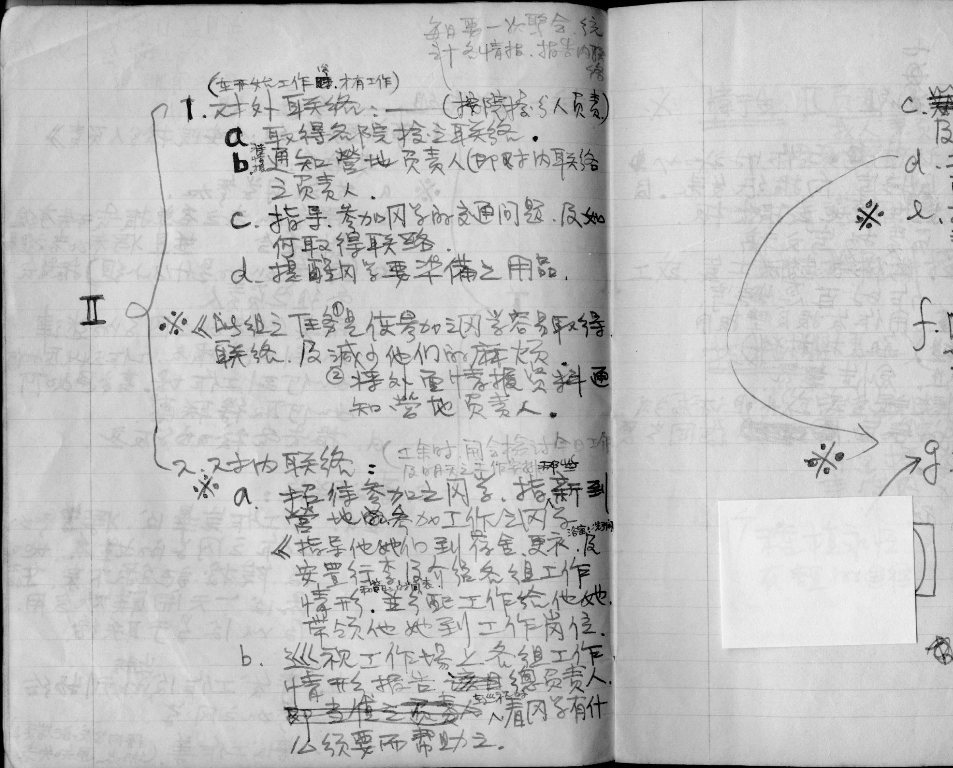 每日第一次联会, 统
计各情报. 报告内联
络
(在开始工作时, 才有工作)
1. 对外联络: — (据院接分人负责)
a. 取得各院校之联络.
b. 通知营地负责人 (即对内联络
之负责人.
c. 指导参加同学的交通问题. 及如
何取得联络.
d. 提醒同学要准备之用品.
II
※《此组之任务①是使参加之同学容易取得
联络. 及减少他们的麻烦.
② 将外面情报资料通
知营地负责人.
2. 对内联络:
(工余时, 开会检讨今日工作
及明天之工作安排
※
a. 招待参加之同学. 指新到
营地参加工作之同学
《指导他她们到宿舍. 更衣. 及
安置行李. 介绍各组工作
情形. 並分配工作给他她.
带领他她到工作岗位.
b. 巡视工作场上各组工作
情形报告总负责人.
看同学有什
么须要而帮助之.
c.
及
d.
※
e.
f.
※
g.